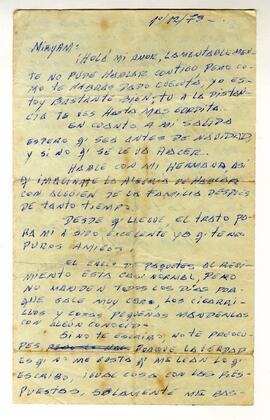 1º/12/73-
MIRYAM:
¡HOLÁ MI AMOR, LAMENTABLEMEN-
TE NO PUDE HABLAR CONTIGO PERO CO-
MO TE HABRÁS DADO CUENTA, YO ES-
TOY BASTANTE BIEN, TU A LA DISTAN-
CIA TE VES HASTA MAS GORDITA.
EN CUANTO A MI SALIDA
ESPERO Q' SEA ANTES DE NAVIDAD,
Y SI NO Q' SE LE VA HACER..
HABLE CON MI HERMANA ASI
Q' IMAGINATE LA ALEGRIA DE HABLAR
CON ALGUIEN DE LA FAMILIA DESPUES
DE TANTO TIEMPO.
DESDE Q' LLEGUE EL TRATO PA
RA MI A SIDO EXCELENTE YA Q' TENGO
PUROS AMIGOS.
EL ENVIO DE PAQUETES DE
MIENTO ESTA CASI NORMAL, PERO
NO MANDEN TODOS LOS DIAS POR
QUE SALE MUY CARO, LOS CIGARRI-
LLOS Y COSAS PEQUEÑAS MANDENLAS
CON ALGUN CONOCIDO.
SI NO TE ESCRIBO, NO TE PREOCU-
PES PORQUE LA VERDAD
ES Q' NO ME GUSTA Q' ME LEAN LO Q'
ESCRIBO, IGUAL COSA CON LAS RES-
PUESTAS, SOLAMENTE ME BAS-